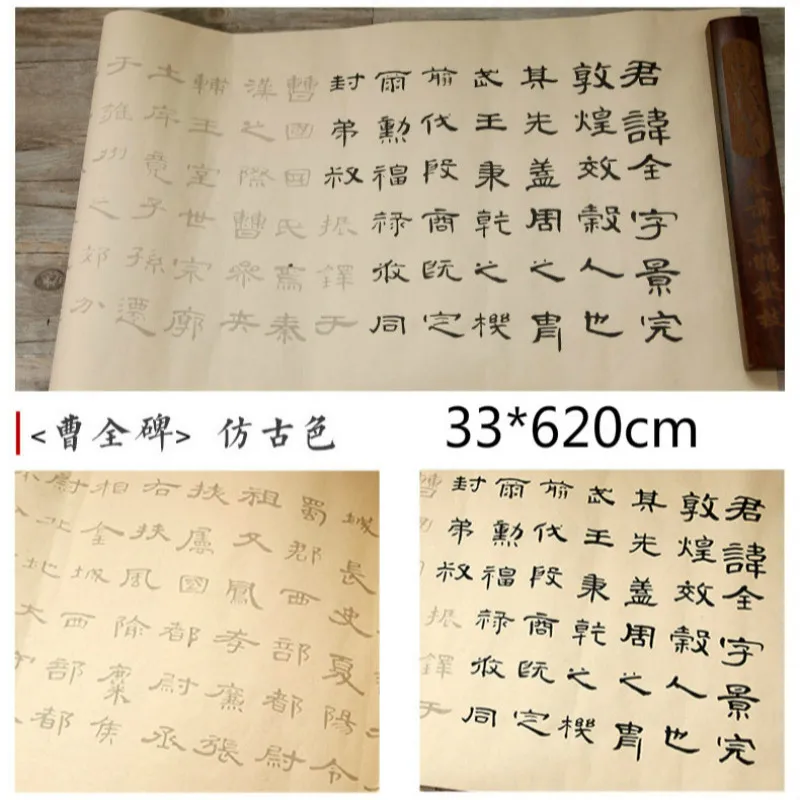 君諱全字景完
敦煌效穀人也
其先蓋周之胄
武王秉乾之機
翦伐殷商既定
爾勳福祿攸同
封弟叔振鐸于
曹國因氏焉秦
漢之際曹參夾
輔王室世宗廓
土斥竟子孫遷
于雍州之郊分
<曹全碑> 仿古色
33*620cm
城長史夏陽令
蜀郡西部都尉
祖父鳳孝廉張
掖屬國都尉丞
右扶風隃麋侯
相金城西部都
尉北地大守
君諱全字景完
敦煌效穀人也
其先蓋周之胄
武王秉乾之機
翦伐殷商既定
爾勳福祿攸同
封弟叔振鐸于
曹